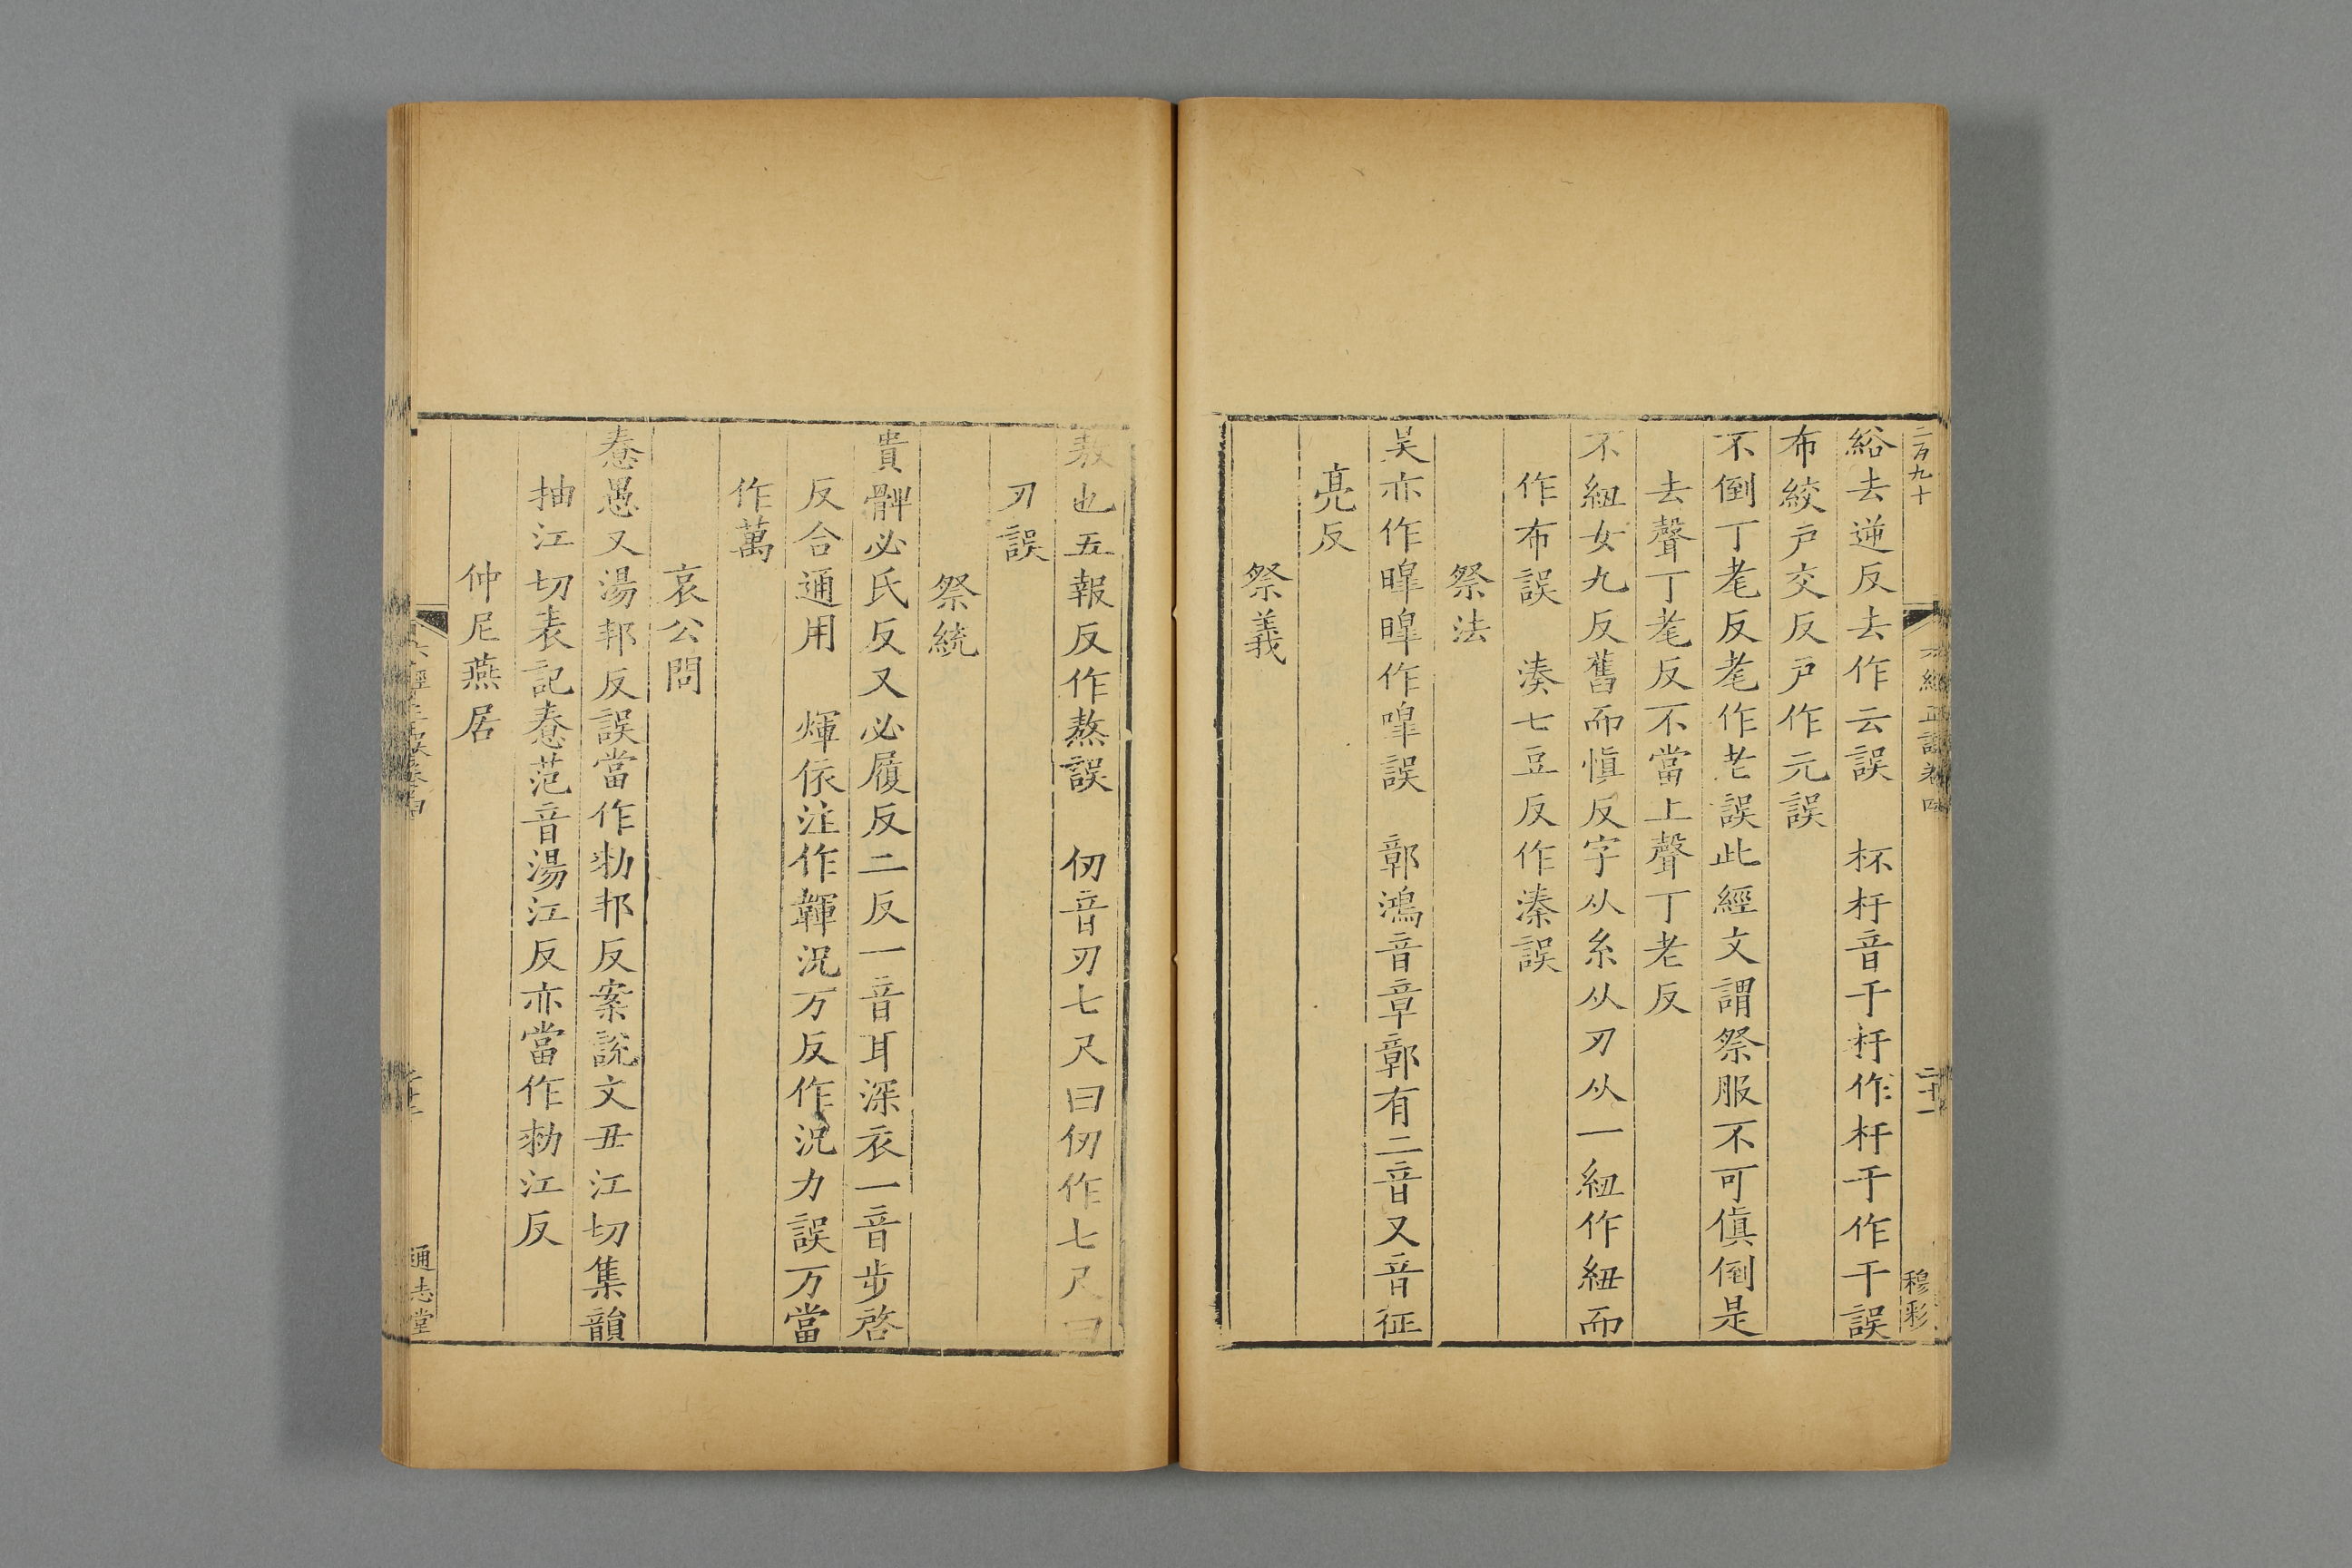 二百九十
六經正誤卷四
二十一
穆彩
綌去逆反去作云誤　杯杅音于杅作杆于作干誤
布絞户交反户作元誤
不倒丁老反老作㐗誤此經文謂祭服不可傎倒是
去聲丁老反不當上聲丁老反
不紐女九反舊而愼反字从糸从刃从一紐作紐而
作布誤　湊七豆反作溱誤
祭法
昊亦作暤暤作嘷誤　鄣鴻音章鄣有二音又音征
亮反
祭義
敖也五報反作熬誤　仞音刃七尺曰仞作七尺曰
刃誤
祭統
貴髀必氏反又必履反二反一音耳深衣一音步啓
反合通用　煇依注作韗況万反作況力誤万當
作萬
哀公問
惷愚又湯邦反誤當作勑邦反案說文丑江切集韻
抽江切表記惷范音湯江反亦當作勑江反
仲尼燕居
六經正誤卷四
通志堂